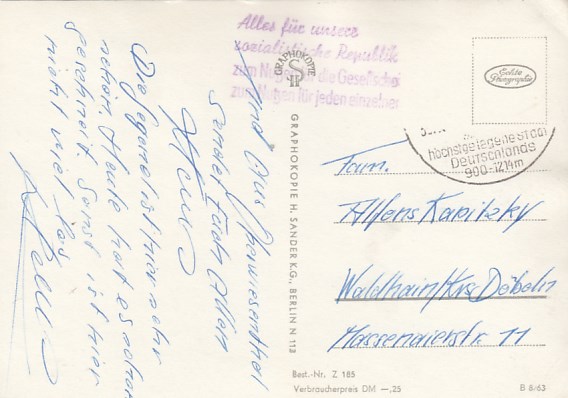 Alles für unsere
sozialistische Republik
zum Nutzen die Gesellschaft
zum Nutzen für jeden einzelnen
GRAPHOKOTTE
Echte
Photographie
höchstgelegene Stadt
Deutschlands
900-1214m
Fam.
Alfons Kapitzky
Waldheim/Krs. Döbeln
Massaneierstr. 11
Oberwiesenthal
sendet Euch Allen
Die Gegend ist hier sehr
nett. Heute hat es schon
geschneit. Sonst ist hier
nicht viel los
GRAPHOKOPIE H. SANDER K.G., BERLIN N 113
Best.-Nr. Z 185
Verbraucherpreis DM —,25
B 8/63